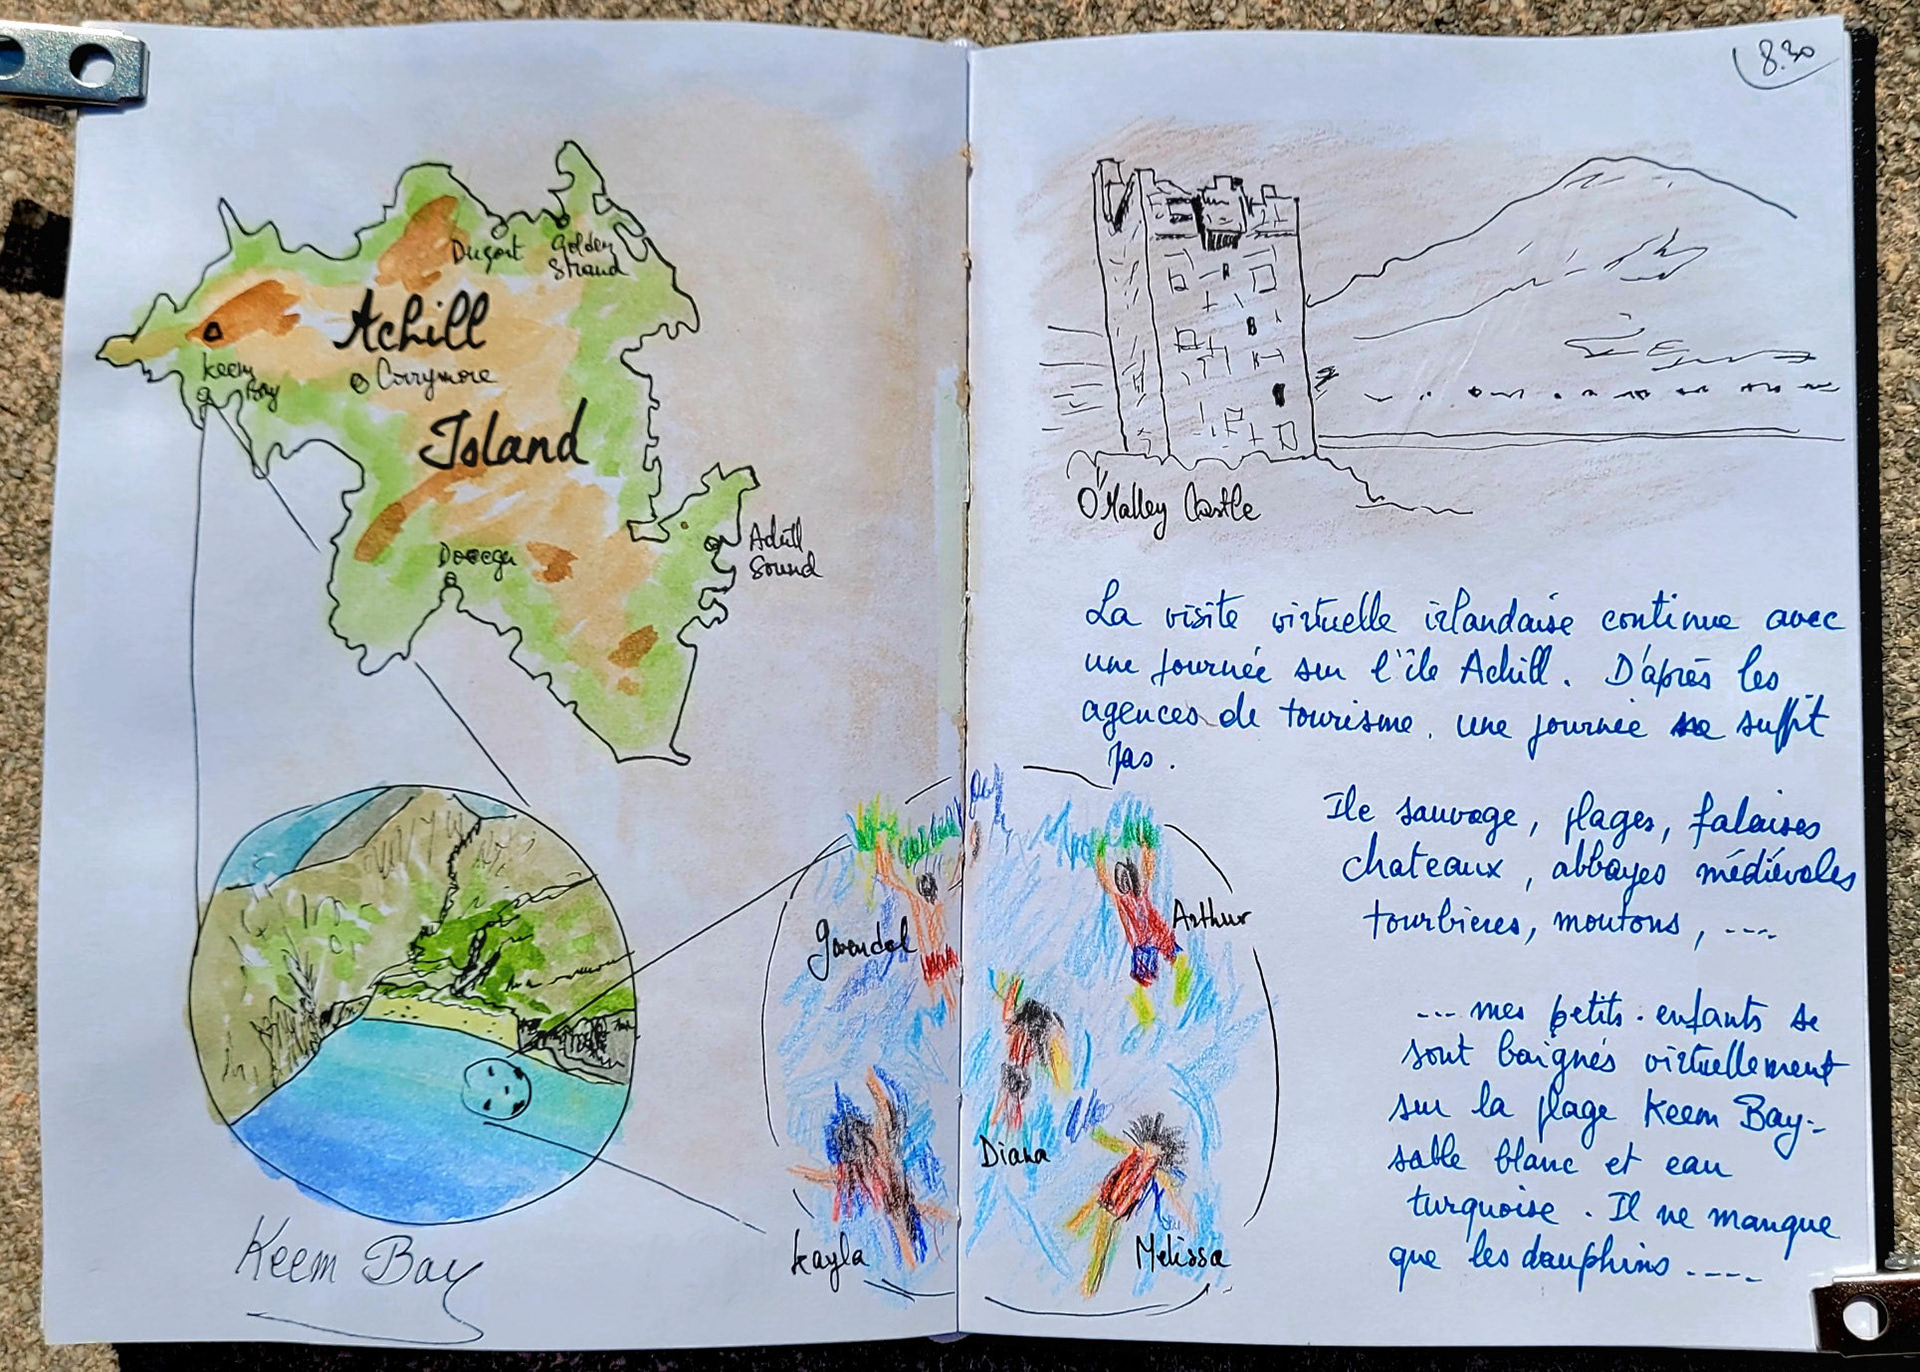 Dugort
Golden
Strand
Achill
Keem
Bay
Corrymore
Island
Dooega
Achill
Sound
Keem Bay
8.30
O'Malley Castle
La visite virtuelle irlandaise continue avec
une journée sur l'île Achill. D'après les
agences de tourisme, une journée ne suffit
pas.
Ile sauvage, plages, falaises
chateaux, abbayes médiévales
tourbières, moutons, ....
... mes petits-enfants se
sont baignés virtuellement
sur la plage Keem Bay:
sable blanc et eau
turquoise. Il ne manque
que les dauphins ....
Gwendal
Arthur
Diana
Kayla
Melissa